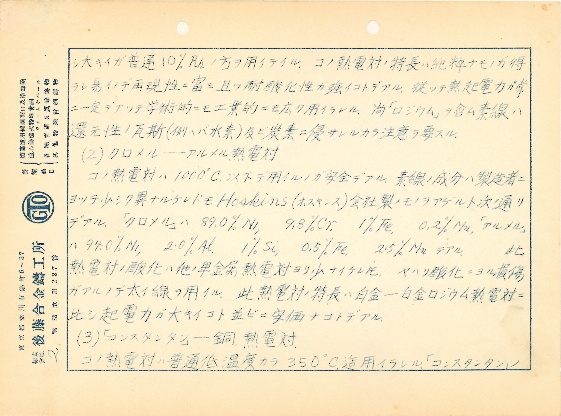 シ大キイガ普通10% Rh ノ方ヲ用イテイル. コノ熱電対ノ特長ハ純粋ナモノガ得
ラレ易イノデ再現性ニ富ミ且ツ耐酸化性ガ強イコトデアル. 従ッテ熱起電力ガ常
ニ一定デアッテ学術的ニモ工業的ニモ広ク用イラレル. 尚「ロジウム」ヲ含ム素線ハ
還元性ノ瓦斯(例ヘバ水素)及ビ炭素ニ侵サレルカラ注意ヲ要スル.
(2) クロメル—アルメル熱電対
コノ熱電対ハ1000°C.以下デ用イルノガ安全デアル. 素線ノ成分ハ製造者ニ
ヨッテ少シク異ナルケレドモ Hoskins (ホスキンス) 会社製ノモノヲアゲルト次ノ通リ
デアル. 「クロメル」ハ 89.0% Ni, 9.8% Cr, 1% Fe, 0.2% Mn, 「アルメル」
ハ 94.0% Ni, 2.0% Al, 1% Si, 0.5% Fe, 2.5% Mn デアル 此
熱電対ノ酸化ハ他ノ卑金属熱電対ヨリ少ナイケレ共 ヤハリ酸化ニヨル損傷
ガアルノデ太イ線ヲ用イル. 此熱電対ノ特長ハ白金—白金ロジウム熱電対ニ
比シ起電力ガ大キイコト並ビニ安価ナコトデアル.
(3)「コンスタンタン」—銅 熱電対
コノ熱電対ハ普通低温度カラ 350°C. 迄用イラレル.「コンスタンタン」ノ
GTO
後藤合金鋳工所